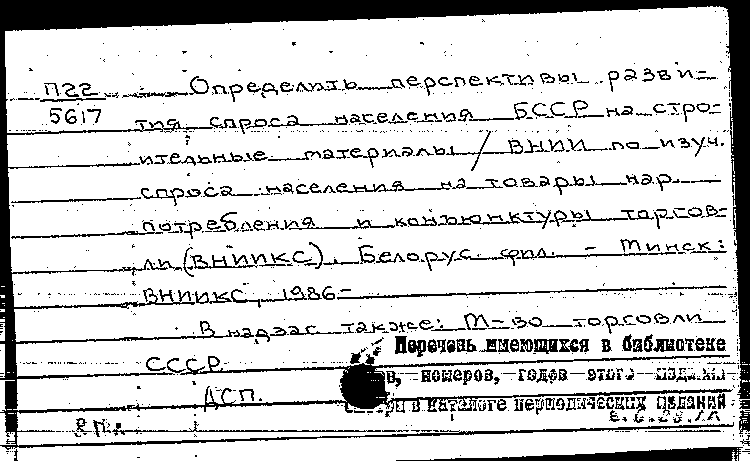 П22 Определить перспективы разви-
5617 тия спроса населения БССР на стро-
ительные материалы / ВНИИ по изуч.
спроса населения на товары нар.
потребления и конъюнктуры торгов-
ли (ВНИИКС), Белорус. фил. - Минск:
ВНИИКС, 1986-
В надзаг также: М-во торговли
СССР.
Перечень имеющихся в библиотеке
в, номеров, годов этого издания
ДСП.
в каталоге периодических изданий